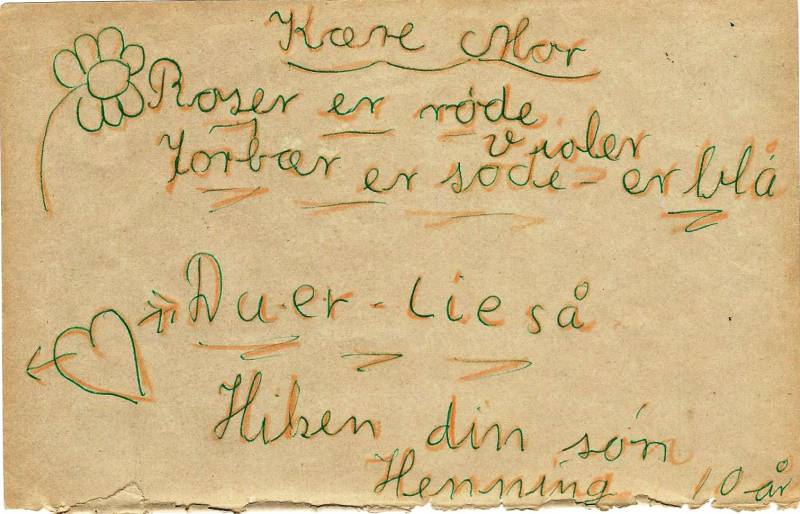 Kære Mor
Roser er røde
violer
Jorbær er søde - er blå
Du-er-lie så
Hilsen din søn
Henning 10 år